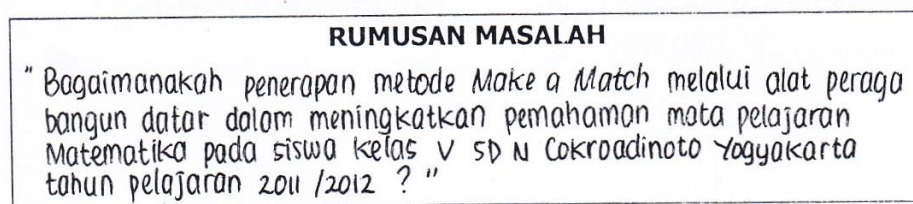 RUMUSAN MASALAH
" Bagaimanakah penerapan metode Make a Match melalui alat peraga
bangun datar dalam meningkatkan pemahaman mata pelajaran
Matematika pada siswa kelas V SD N Cokroadinoto Yogyakarta
tahun pelajaran 2011 /2012 ? "